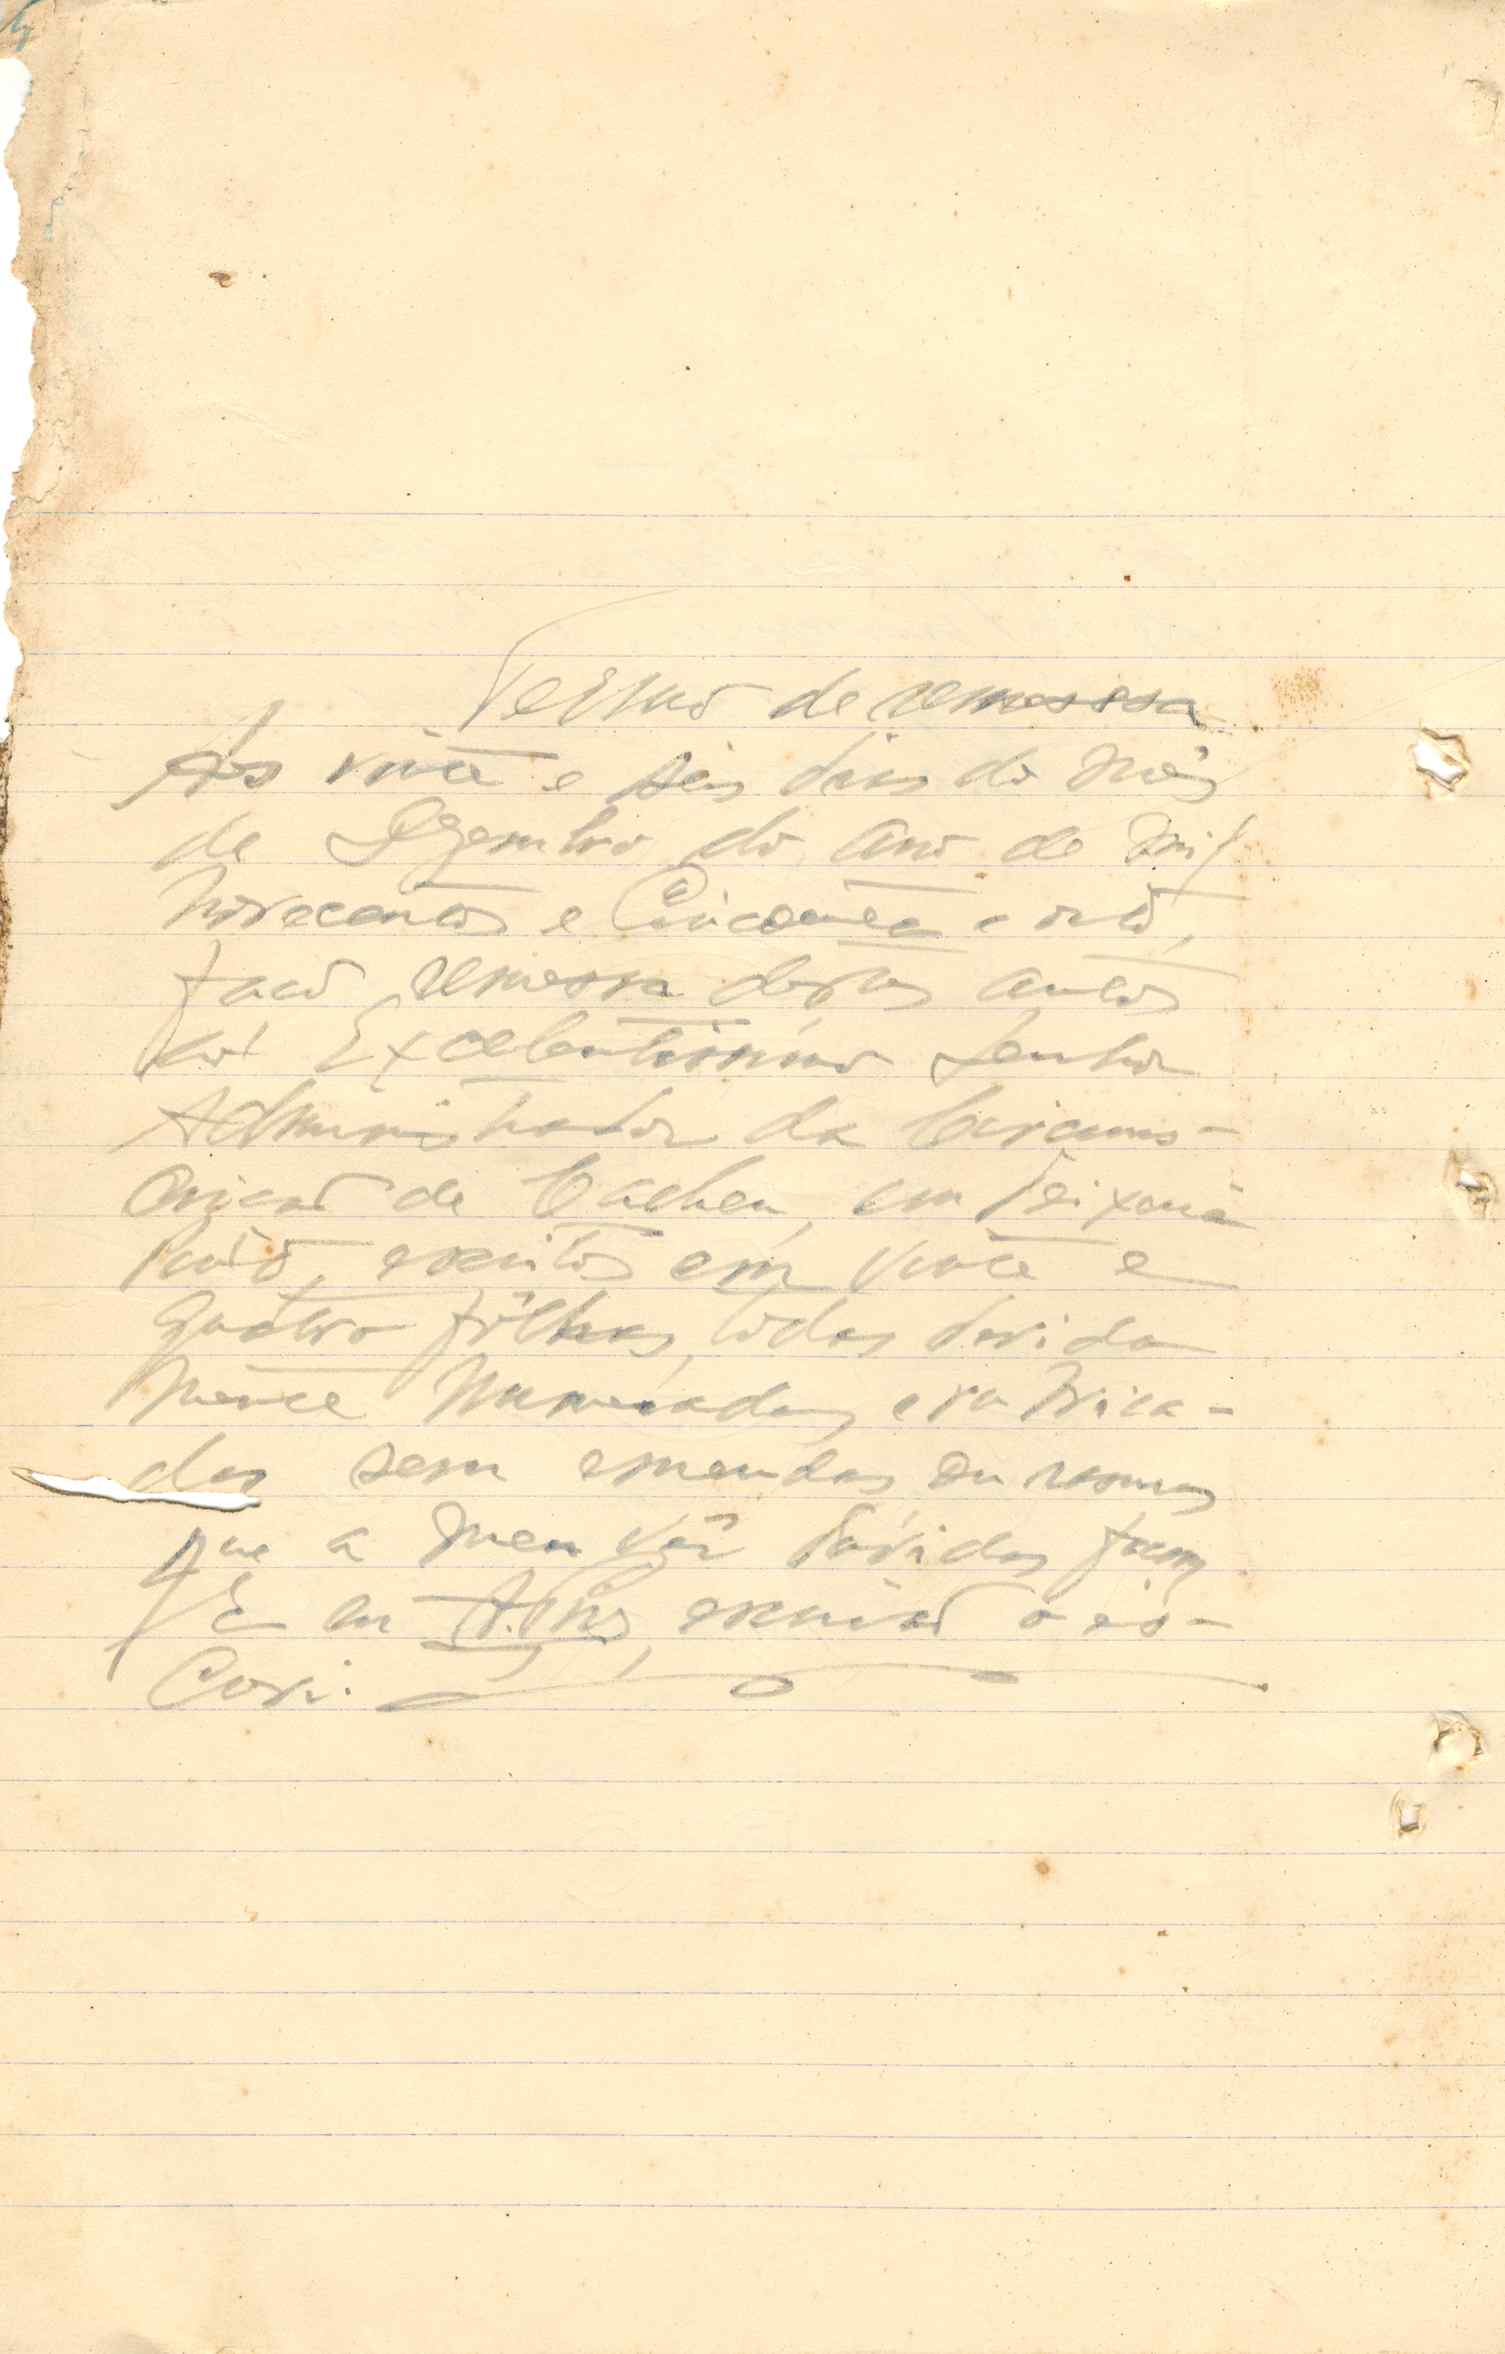 Termo de remessa
Aos vinte e seis dias do mês
de Dezembro do ano de mil
novecentos e Cincoenta e oito,
faço remessa destes autos
ao Excelentissimo Senhor
Administrador da Circuns-
crição de Cacheu, em Teixeira
Pinto, escritos em vinte e
quatro fôlhas, todas devida
mente numeradas e rubrica-
das sem emendas ou rasuras
que a meu vêr duvidas façam
E eu escrivão o es-
crevi.